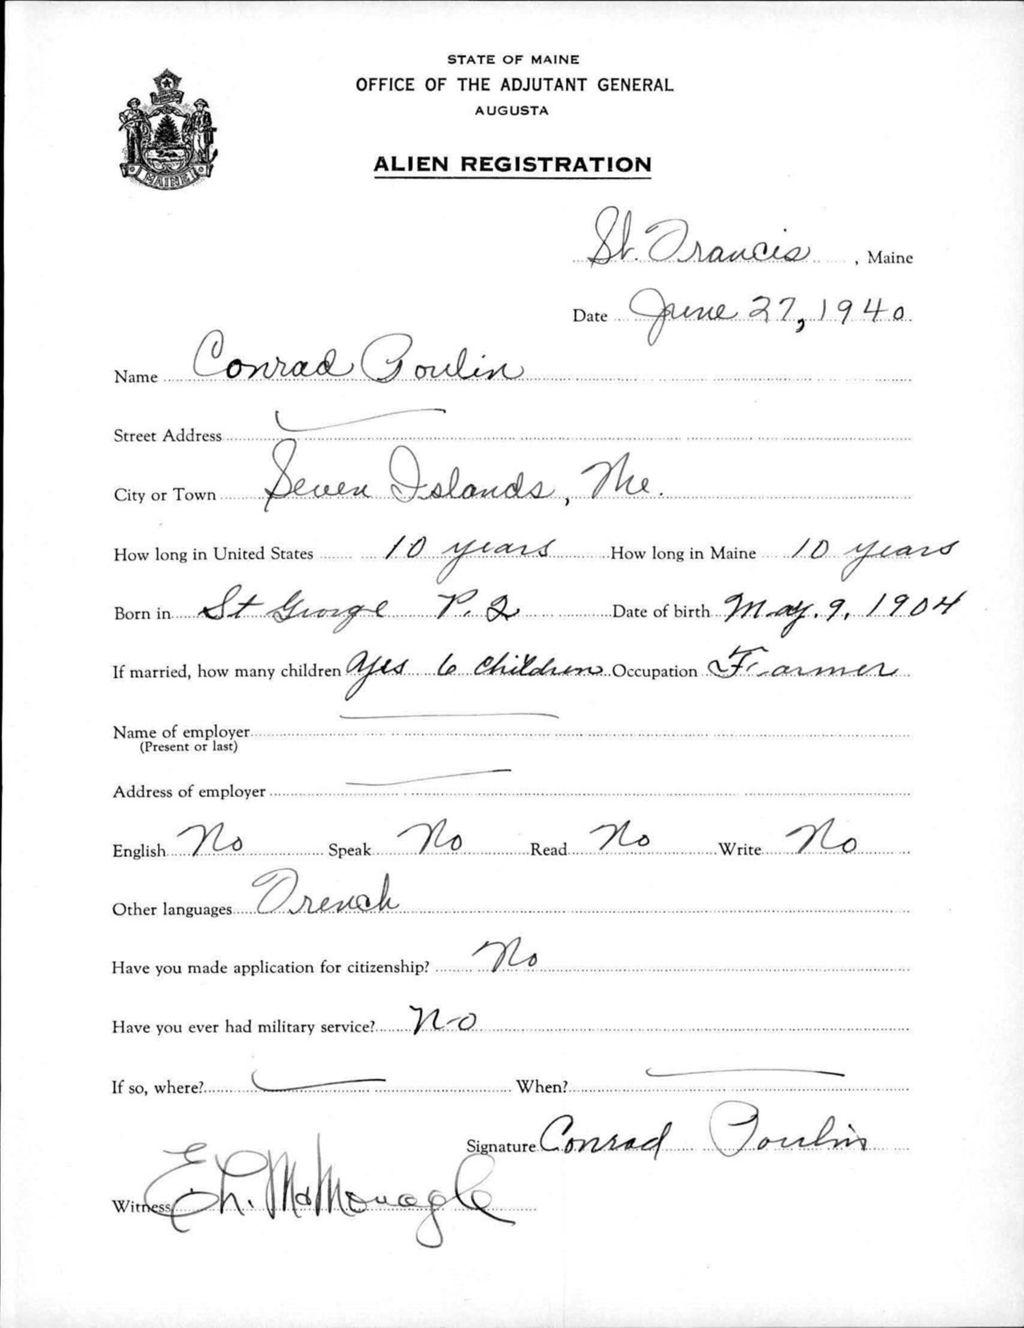 STATE OF MAINE
OFFICE OF THE ADJUTANT GENERAL
AUGUSTA
ALIEN REGISTRATION
MAINE
St. Francis, Maine
Date June 27, 1940
Name Conrad Poulin
Street Address
City or Town Seven Islands, Me.
How long in United States 10 years How long in Maine 10 years
Born in St George P. Q Date of birth May. 9, 1904
If married, how many children yes 6 children Occupation Farmer
Name of employer
(Present or last)
Address of employer
English No Speak No Read No Write No
Other languages French
Have you made application for citizenship? No
Have you ever had military service? No
If so, where? When?
Signature Conrad Poulin
Witness McMonagle